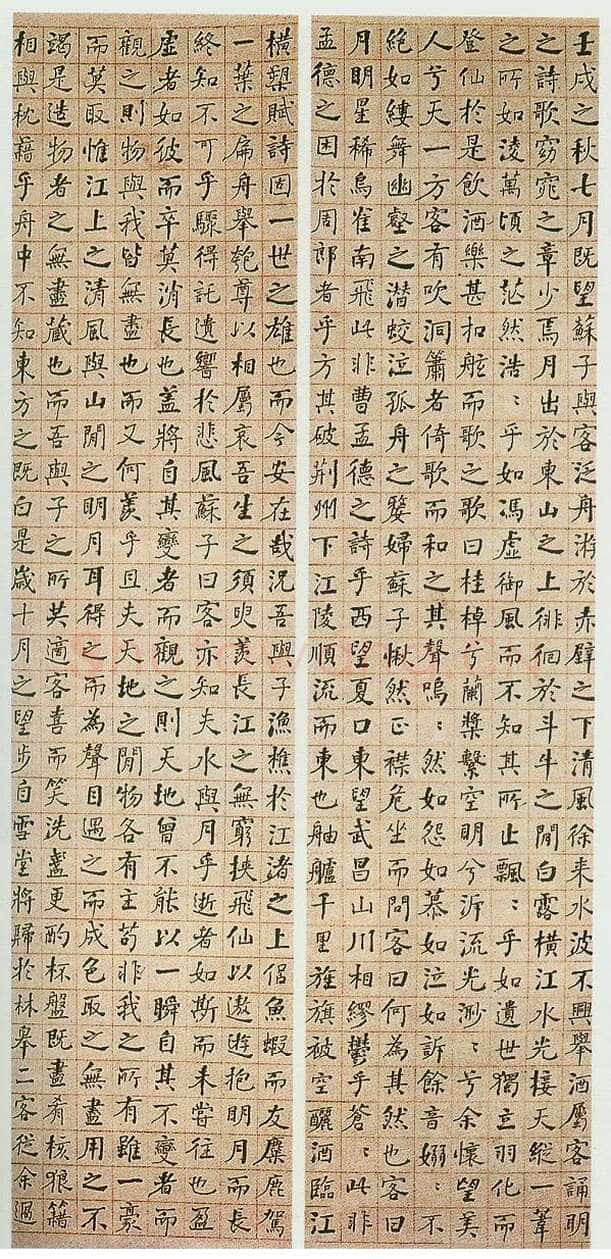 壬戌之秋七月既望蘇子與客泛舟游於赤壁之下清風徐来水波不興舉酒屬客誦明
之詩歌窈窕之章少焉月出於東山之上徘徊於斗牛之閒白露橫江水光接天縱一葦
之所如淩萬頃之茫然浩〻乎如馮虛御風而不知其所止飄〻乎如遺世獨立羽化而
登仙於是飲酒樂甚扣舷而歌之歌曰桂棹兮蘭槳繫空明兮泝流光渺〻兮余懷望美
人兮天一方客有吹洞簫者倚歌而和之其聲嗚〻然如怨如慕如泣如訴餘音嫋〻不
絕如縷舞幽壑之潛蛟泣孤舟之嫠婦蘇子愀然正襟危坐而問客曰何為其然也客曰
月明星稀烏雀南飛此非曹孟德之詩乎西望夏口東望武昌山川相繆鬱乎蒼〻此非
孟德之困於周郎者乎方其破荊州下江陵順流而東也舳艫千里旌旗被空釃酒臨江
橫槊賦詩固一世之雄也而今安在哉況吾與子漁樵於江渚之上侶魚蝦而友麋鹿駕
一葉之扁舟舉匏尊以相屬哀吾生之須臾羨長江之無窮挾飛仙以遨遊抱明月而長
終知不可乎驟得託遺響於悲風蘇子曰客亦知夫水與月乎逝者如斯而未嘗往也盈
虛者如彼而卒莫消長也蓋將自其變者而觀之則天地曾不能以一瞬自其不變者而
觀之則物與我皆無盡也而又何羨乎且夫天地之閒物各有主苟非我之所有雖一豪
而莫取惟江上之清風與山閒之明月耳得之而為聲目遇之而成色取之無盡用之不
竭是造物者之無盡藏也而吾與子之所共適客喜而笑洗盞更酌杯盤既盡肴核狼籍
相與枕藉乎舟中不知東方之既白是歲十月之望步自雪堂將歸於林皋二客從余過